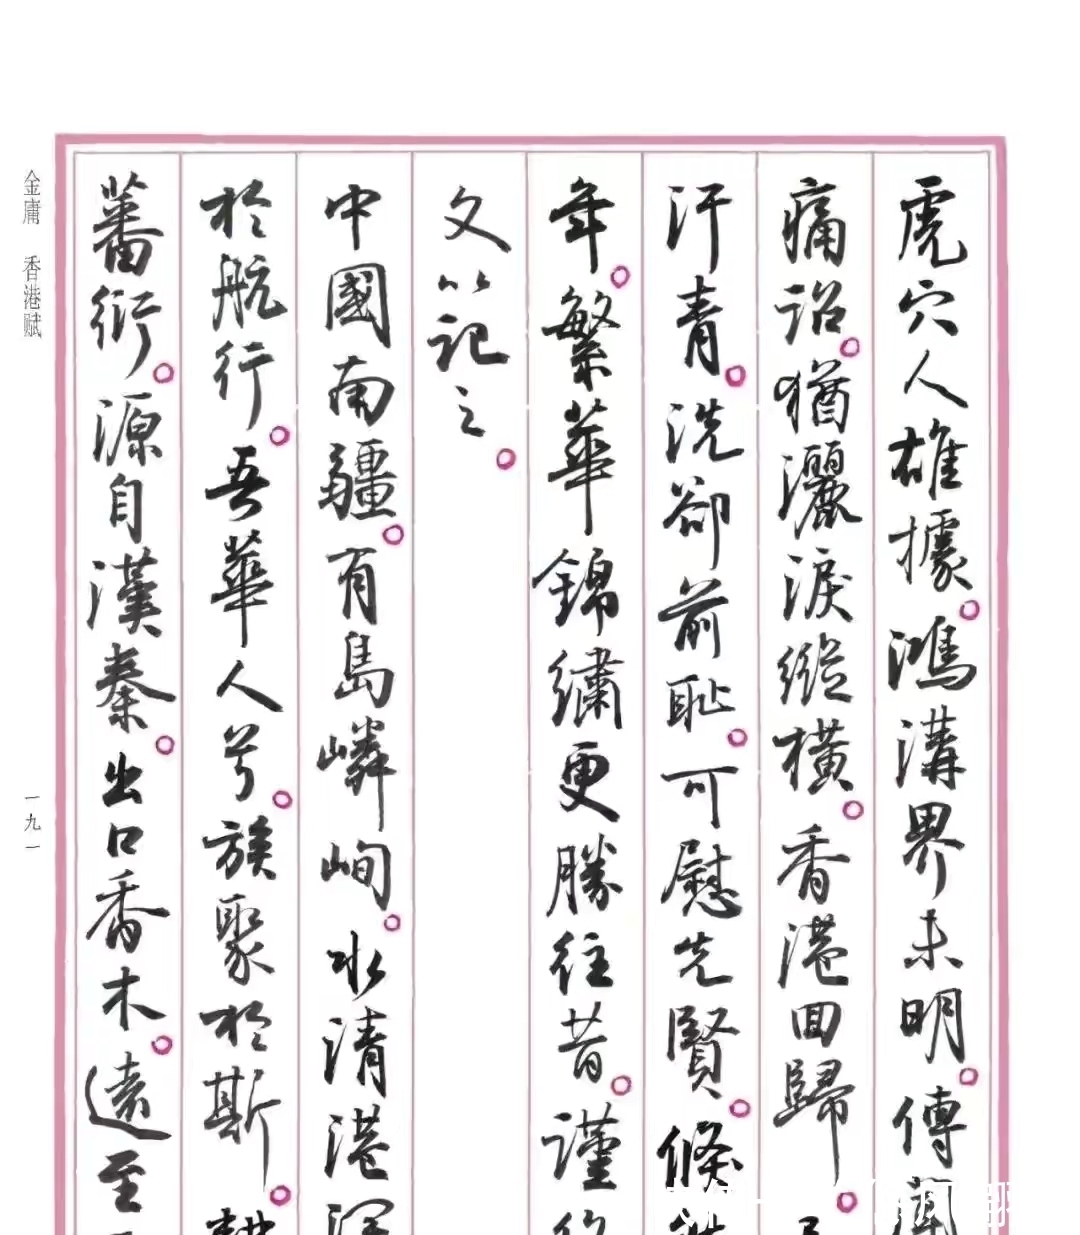 虎穴人雄據。鴻溝界未明。傳聞
痛詔。猶灑淚縱橫。香港回歸。
汗青。洗卻前恥。可慰先賢。倏
年。繁華錦繡更勝往昔。謹
文以記之。
中國南疆。有島嶙峋。水清港深
於航行。吾華人兮。族聚於斯。耕
蕃衍。源自漢秦。出口香木。遠至
金庸 香港賦
一九一